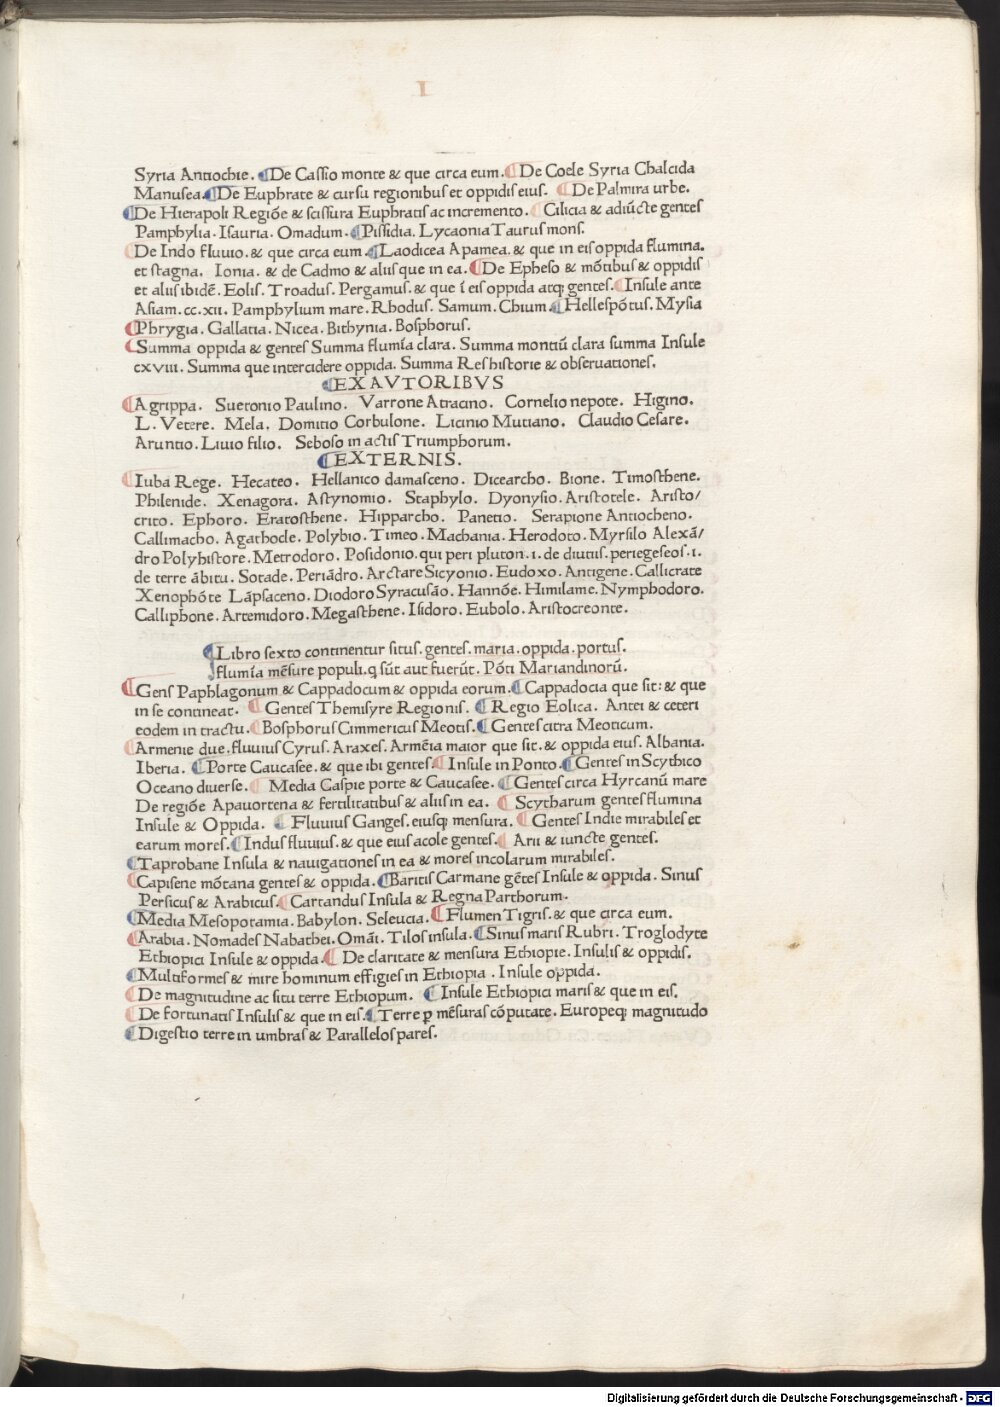 I
Syria Antiochie. ¶De Cassio monte & que circa eum. ¶De Coele Syria Chalcida
Manusea. ¶De Euphrate & cursu regionibus et oppidis eius. ¶De Palmira urbe.
¶De Hierapoli Regiõe & scissura Euphratis ac incremento. ¶Cilicia & adiũcte gentes
Pamphylia. Isauria. Omadum. ¶Pissidia. Lycaonia Taurus mons.
¶De Indo fluuio. & que circa eum. ¶Laodicea Apamea. & que in eis oppida flumina.
et stagna. Ionia. & de Cadmo & aliis que in ea. ¶De Epheso & mõtibus & oppidis
et aliis ibidẽ. Eolis. Troadus. Pergamus. & que ĩ eis oppida atq; gentes. ¶Insule ante
Asiam. cc. xii. Pamphylium mare. Rhodus. Samum. Chium. ¶Hellespõtus. Mysia
¶Phrygia. Gallatia. Nicea. Bithynia. Bosphorus.
¶Summa oppida & gentes Summa flumĩa clara. Summa montiũ clara summa Insule
cxviii. Summa que intercidere oppida. Summa Res historie & obseruationes.
¶EX AVTORIBVS
¶Agrippa. Suetonio Paulino. Varrone Atracino. Cornelio nepote. Higino.
L. Vetere. Mela. Domitio Corbulone. Licinio Mutiano. Claudio Cesare.
Aruntio. Liuio filio. Seboso in actis Triumphorum.
¶EXTERNIS.
¶Iuba Rege. Hecateo. Hellanico damasceno. Dicearcho. Bione. Timosthene.
Philenide. Xenagora. Astynomio. Staphylo. Dyonysio. Aristotele. Aristo/
crito. Ephoro. Eratosthene. Hipparcho. Panetio. Serapione Antiocheno.
Callimacho. Agathocle. Polybio. Timeo. Machania. Herodoto. Myrsilo Alexã/
dro Polyhistore. Metrodoro. Posidonio. qui peri pluton. i. de diuitiis. periegeseos. i.
de terre ãbitu. Sotade. Periãdro. Arctare Sicyonio. Eudoxo. Antigene. Callicrate
Xenophõte Lãpsaceno. Diodoro Syracusão. Hannõe. Himilame. Nymphodoro.
Calliphone. Artemidoro. Megasthene. Isidoro. Eubolo. Aristocreonte.
¶Libro sexto continentur situs. gentes. maria. oppida. portus.
flumĩa mẽsure populi. q sũt aut fuerũt. Põti Mariandinorũ.
¶Gens Paphlagonum & Cappadocum & oppida eorum. ¶Cappadocia que sit: & que
in se contineat. ¶Gentes Themisyre Regionis. ¶Regio Eolica. Antei & ceteri
eodem in tractu. ¶Bosphorus Cimmericus Meotis. ¶Gentes citra Meoticum.
¶Armenie due. fluuius Cyrus. Araxes. Armẽia maior que sit. & oppida eius. Albania.
Iberia. ¶Porte Caucasee. & que ibi gentes. ¶Insule in Ponto. ¶Gentes in Scythico
Oceano diuerse. ¶Media Caspie porte & Caucasee. ¶Gentes circa Hyrcanũ mare
De regiõe Apauortena & fertilitatibus & aliis in ea. ¶Scytharum gentes flumina
Insule & Oppida. ¶Fluuius Ganges. eiusq; mensura. ¶Gentes Indie mirabiles et
earum mores. ¶Indus fluuius. & que eius acole gentes. ¶Arii & iuncte gentes.
¶Taprobane Insula & nauigationes in ea & mores incolarum mirabiles.
¶Capisene mõtana gentes & oppida. ¶Baritis Carmane gẽtes Insule & oppida. Sinus
Persicus & Arabicus. ¶Cartandus Insula & Regna Parthorum.
¶Media Mesopotamia. Babylon. Seleucia. ¶Flumen Tigris. & que circa eum.
¶Arabia. Nomades Nabathei. Omãi. Tilos insula. ¶Sinus maris Rubri. Troglodyte
Ethiopici Insule & oppida. ¶De claritate & mensura Ethiopie. Insulis & oppidis.
¶Multiformes & mire hominum effigies in Ethiopia. Insule oppida.
¶De magnitudine ac situ terre Ethiopum. ¶Insule Ethiopici maris & que in eis.
¶De fortunatis Insulis & que in eis. ¶Terre ꝑ mẽsuras cõputate. Europeq; magnitudo
¶Digestio terre in umbras & Parallelos pares.
Digitalisierung gefördert durch die Deutsche Forschungsgemeinschaft - DFG